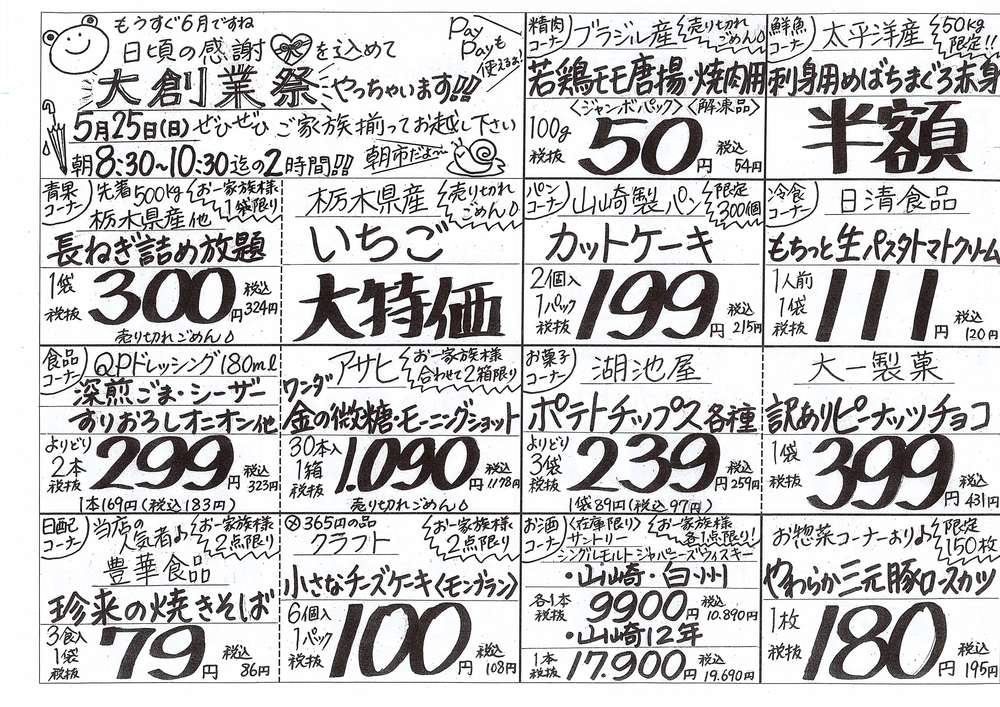 もうすぐ6月ですね
日頃の感謝を込めて
大創業祭やっちゃいます!!
PayPayも使えるよ!
5月25日(日)ぜひぜひご家族揃ってお越し下さい
朝8:30~10:30迄の2時間!!
朝市だよ~
精肉コーナー
ブラジル産
売り切れごめん♪
若鶏モモ唐揚・焼肉用
〈ジャンボパック〉〈解凍品〉
100g 税抜 50円 税込54円
鮮魚コーナー
太平洋産
50kg限定!!
刺身用めばちまぐろ赤身
半額
青果コーナー
先着500kg
お一家族様1袋限り
栃木県産他
長ねぎ詰め放題
1袋 税抜 300円 税込324円
売り切れごめん♪
栃木県産
売り切れごめん♪
いちご
大特価
パンコーナー
山崎製パン
限定300個
カットケーキ
2個入 1パック 税抜 199円 税込215円
冷食コーナー
日清食品
もちっと生パスタトマトクリーム
1人前 1袋 税抜 111円 税込120円
食品コーナー
QPドレッシング180ml
深煎ごま・シーザー
すりおろしオニオン他
よりどり 2本 税抜 299円 税込323円
1本169円(税込183円)
アサヒ
お一家族様合わせて2箱限り
ワンダ
金の微糖・モーニングショット
30本入 1箱 税抜 1.090円 税込1178円
売り切れごめん♪
お菓子コーナー
湖池屋
ポテトチップス各種
よりどり 3袋 税抜 239円 税込259円
1袋89円(税込97円)
大一製菓
訳ありピーナッツチョコ
1袋 税抜 399円 税込431円
日配コーナー
当店の人気者♪
お一家族様2点限り
豊華食品
珍来の焼きそば
3食入 1袋 税抜 79円 税込86円
※365円の品
クラフト
お一家族様2点限り
小さなチーズケーキ〈モンブラン〉
6個入 1パック 税抜 100円 税込108円
お酒コーナー
〈在庫限り〉
サントリー
お一家族様各1点限り!
シングルモルトジャパニーズウィスキー
・山崎・白州
各1本 税抜 9900円 税込10.890円
・山崎12年
1本 税抜 17.900円 税込19.690円
お惣菜コーナーより♪
限定150枚
やわらか三元豚ロースカツ
1枚 税抜 180円 税込195円